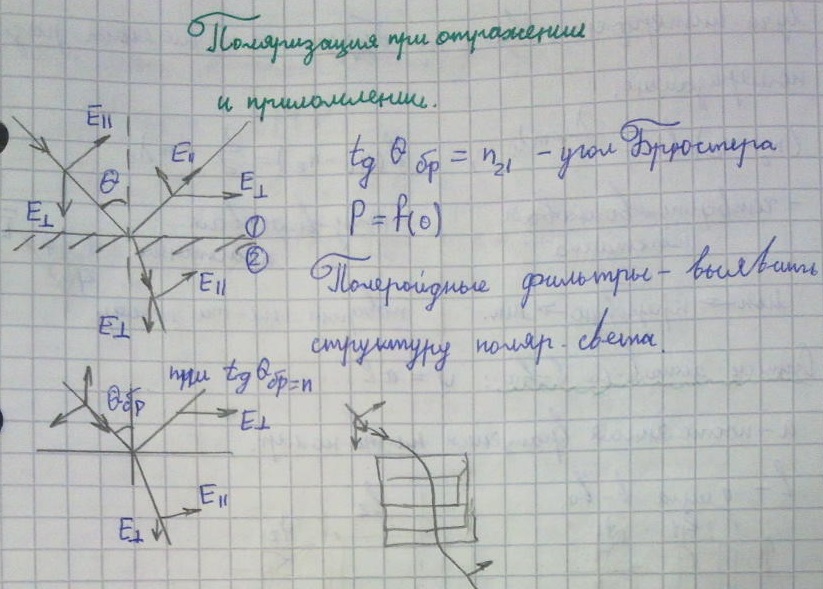 Поляризация при отражении
и приломлении.
E||
E||
θ
tg θ бр = n21 - угол Брюстера
E⊥
E⊥
①
P = f(θ)
②
E||
Полеройдные фильтры - выявить
E⊥
структуру поляр. света.
при tg θбр=n
θбр
E⊥
E||
E⊥